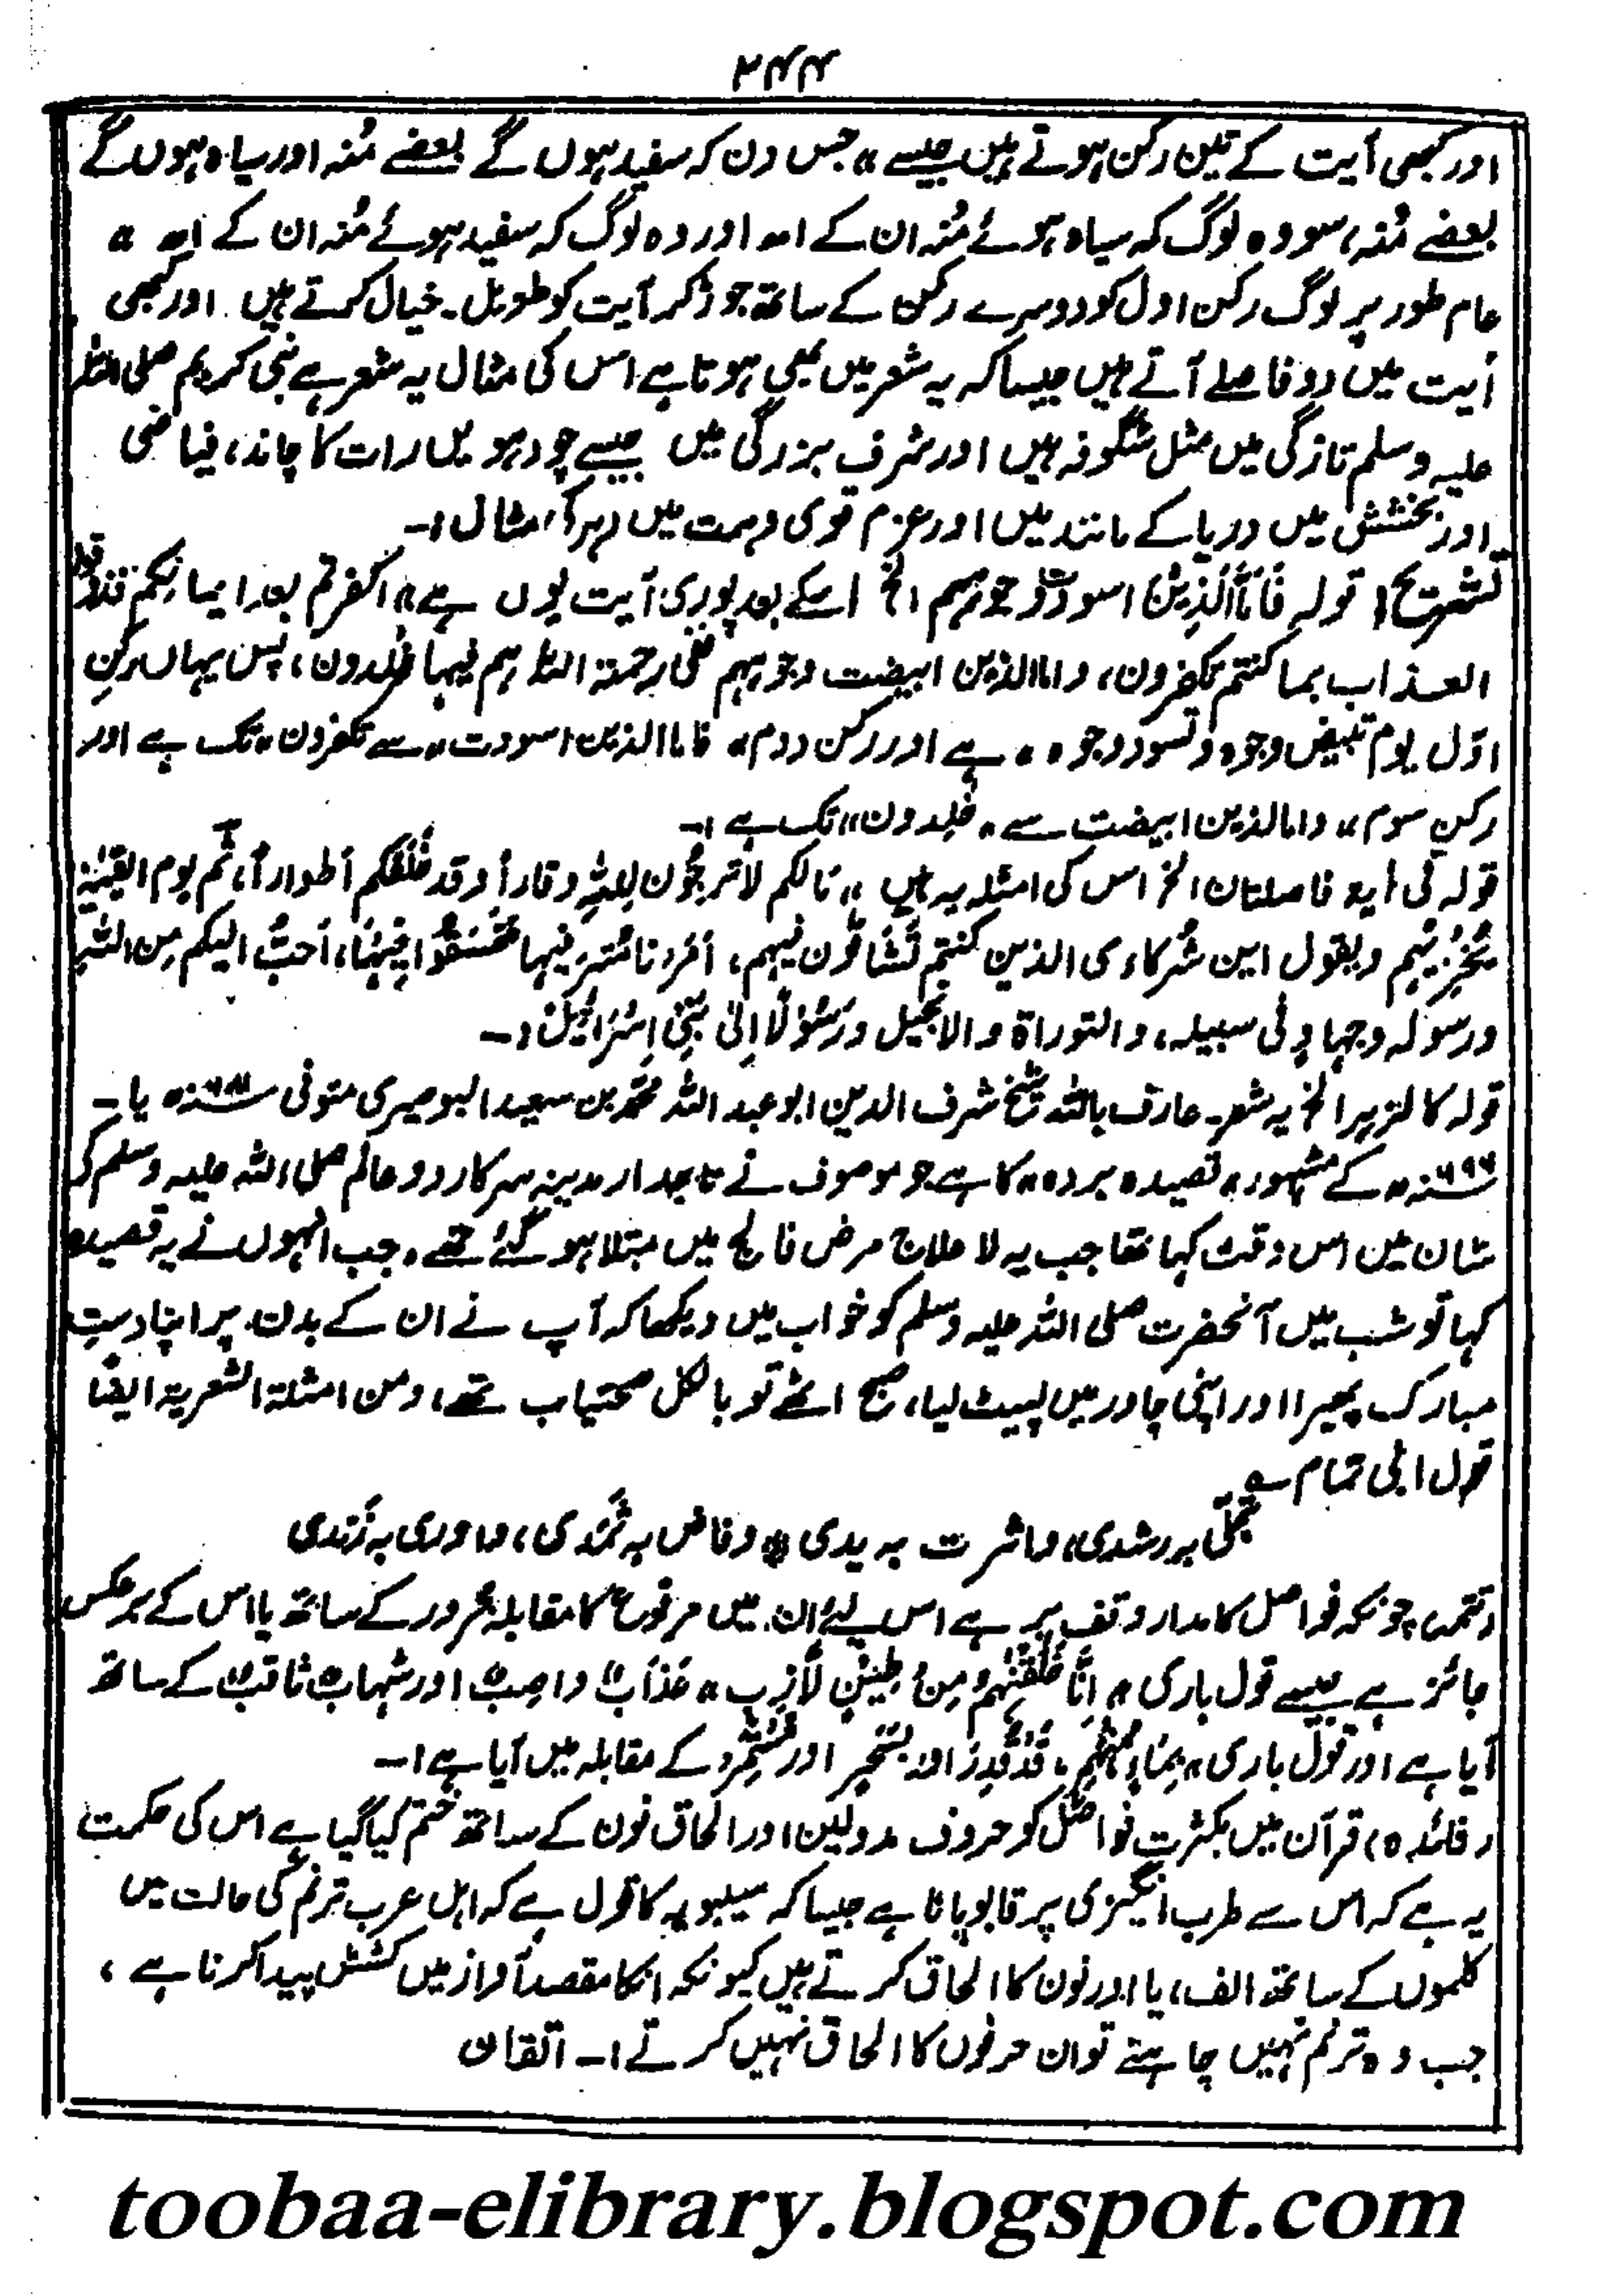 ۲۴۴
اور کبھی آیت کے تین رکن ہوتے ہیں جیسے "جس دن کہ سفید ہوں گے بعضے مُنہ اور سیاہ ہوں گے
بعضے مُنہ، سو وہ لوگ کہ سیاہ ہوئے مُنہ ان کے اھ اور وہ لوگ کہ سفید ہوئے مُنہ ان کے اھ "
عام طور پر لوگ رکن اول کو دوسرے رکن کے ساتھ جوڑ کر آیت کو طویل۔خیال کرتے ہیں۔ اور کبھی
آیت میں دو فاصلے آتے ہیں جیسا کہ یہ شعر میں بھی ہوتا ہے اس کی مثال یہ شعر ہے نبی کریم صلی اللہ
علیہ وسلم تازگی میں مثل شگوفہ ہیں اور شرف بزرگی میں جیسے چودہویں رات کا چاند، فیاضی
اور بخشش میں دریا کے مانند ہیں اور عزم قوی وہمت میں دہر کی مثال :۔
تشریح: قولہ فَاَمَّا الَّذِیْنَ اسودّت وجوہُہم الخ اسکے بعد پوری آیت یوں ہے "اکفرتم بعد ایمانکم فذوقوا
العذاب بما کنتم تکفرون، واما الذین ابیضت وجوہہم ففی رحمۃ اللہ ہم فیہا خٰلدون، پس یہاں رکنِ
اوّل یوم تبیض وجوہ وتسود وجوہ " ہے اور رکن دوم" فاما الذین اسودت" سے تکفرون" تک ہے اور
رکنِ سوم" واما الذین ابیضت سے " خٰلدون" تک ہے :۔
قولہ فی آیۃ فاصلتان الخ اس کی امثلہ یہ ہیں " مَا لکم لا ترجُون لِلّٰہِ وقاراً وقد خَلَقَکم أطواراً، ثم یوم القیٰمۃ
یُخْزِیْہم ویقول این شُرکاءی الذین کنتم تُشَاقُّون فیہم، اَمَرْنا مُتْرَفِیہا فَفَسَقُوْا فِیْہَا، اَحبَّ الیکم مِن اللّٰہِ
ورسولہ وجہادٍ فی سبیلہ، والتوراۃ والانجیل وَرَسُوْلًا اِلٰی بَنِیْ اِسْرَائِیْلَ :۔
قولہ کالزہر الخ یہ شعر۔ عارف باللہ شیخ شرف الدین ابو عبد اللہ محمد بن سعید البوصیری متوفی یا۔
کے مشہور" قصیدہ بردہ" کا ہے جو موصوف نے تاجدار مدینہ سرکار دو عالم صلی اللہ علیہ وسلم کی
شان میں اس وقت کہا تھا جب یہ لا علاج مرض فالج میں مبتلا ہو گئے تھے۔ جب انہوں نے یہ قصیدہ
کہا تو شب میں آنحضرت صلی اللہ علیہ وسلم کو خواب میں دیکھا کہ آپ نے ان کے بدن۔ پر اپنا دستِ
مبارک پھیرا اور اپنی چادر میں لپیٹ لیا، صبح اٹھے تو بالکل صحتیاب تھے، ومن امثلۃ الشعریۃ ایضاً
قول ابی تمام ؎
تجلّٰی بہ رشدی، واثرت بہ یدی * وفاض بہ ثمدی، واوری بہ زندی
چونکہ فواصل کا مدار وقف پر ہے اس لیے ان میں مرفوع کا مقابلہ مجرور کے ساتھ یا اس کے برعکس
جائز ہے جیسے قول باری " اِنَّا خَلَقْنٰہُمْ مِنْ طِیْنٍ لَّازِبٍ " عَذَابٌ واصِبٌ اور شہابٌ ثاقبٌ کے ساتھ
آیا ہے اور قول باری " بِمَاءٍ مُّنْہَمِرٍ، قَدْ قُدِرَ اور مُسْتَمِر کے مقابلہ میں آیا ہے :۔
(فائدہ) قرآن میں بکثرت فواصل کو حروف مدولین اور الحاق نون کے ساتھ ختم کیا گیا ہے اس کی حکمت
یہ ہے کہ اس سے طرب انگیزی پر قابو پانا ہے جیسا کہ سیبویہ کا قول ہے کہ اہل عرب ترنم کی حالت میں
کلموں کے ساتھ الف، یا اور نون کا الحاق کرتے ہیں کیونکہ انکا مقصد آواز میں کشش پیدا کرنا ہے ،
جب وہ ترنم نہیں چاہتے تو ان حرفوں کا الحاق نہیں کرتے :۔ اتقان
toobaa-elibrary.blogspot.com